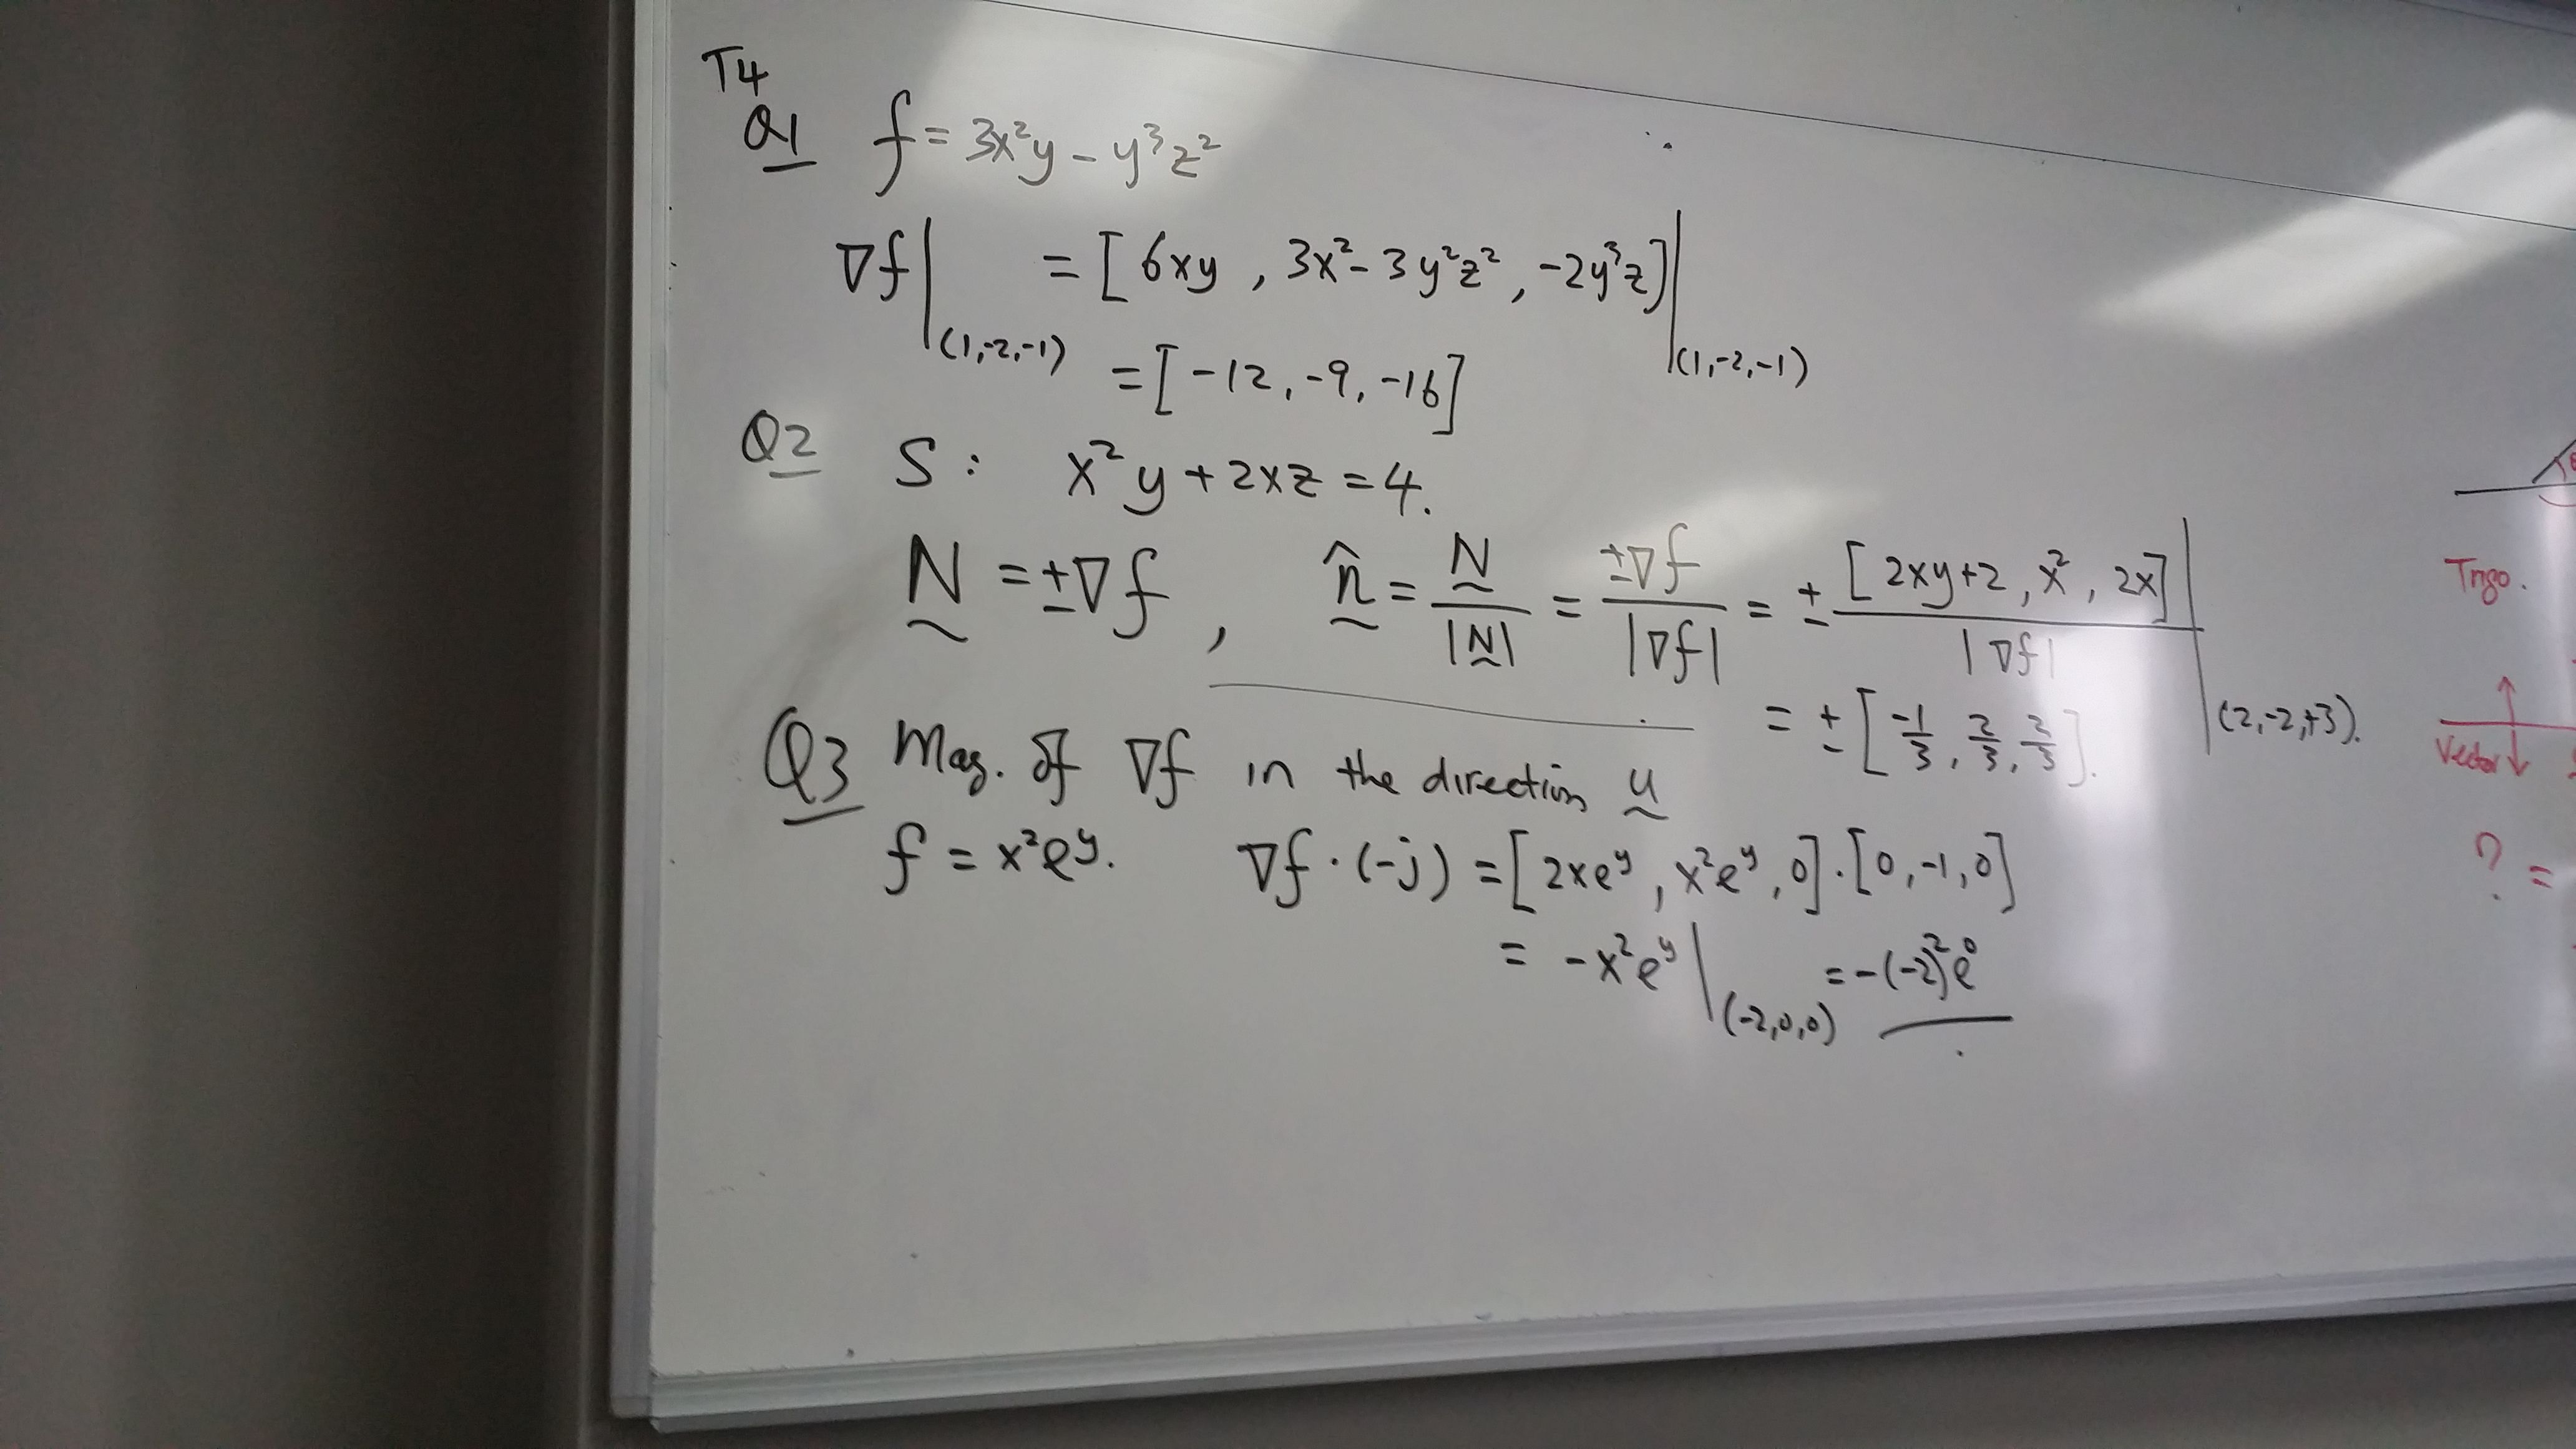 T4
Q1 f = 3x²y - y³z²
∇f|(1,-2,-1) = [6xy, 3x²-3y²z², -2y³z]|(1,-2,-1)
= [-12, -9, -16]
Q2 S: x²y + 2xz = 4.
N = ±∇f, n̂ = N/|N| = ±∇f/|∇f| = ± [2xy+2, x², 2x]/|∇f| |(2,-2,+3).
= ± [-1/3, 2/3, 2/3].
Q3 Mag. of ∇f in the direction u
f = x²eʸ. ∇f·(-j) = [2xeʸ, x²eʸ, 0]·[0,-1,0]
= -x²eʸ|(-2,0,0) = -(-2)²e⁰
Trigo.
Vector
? =